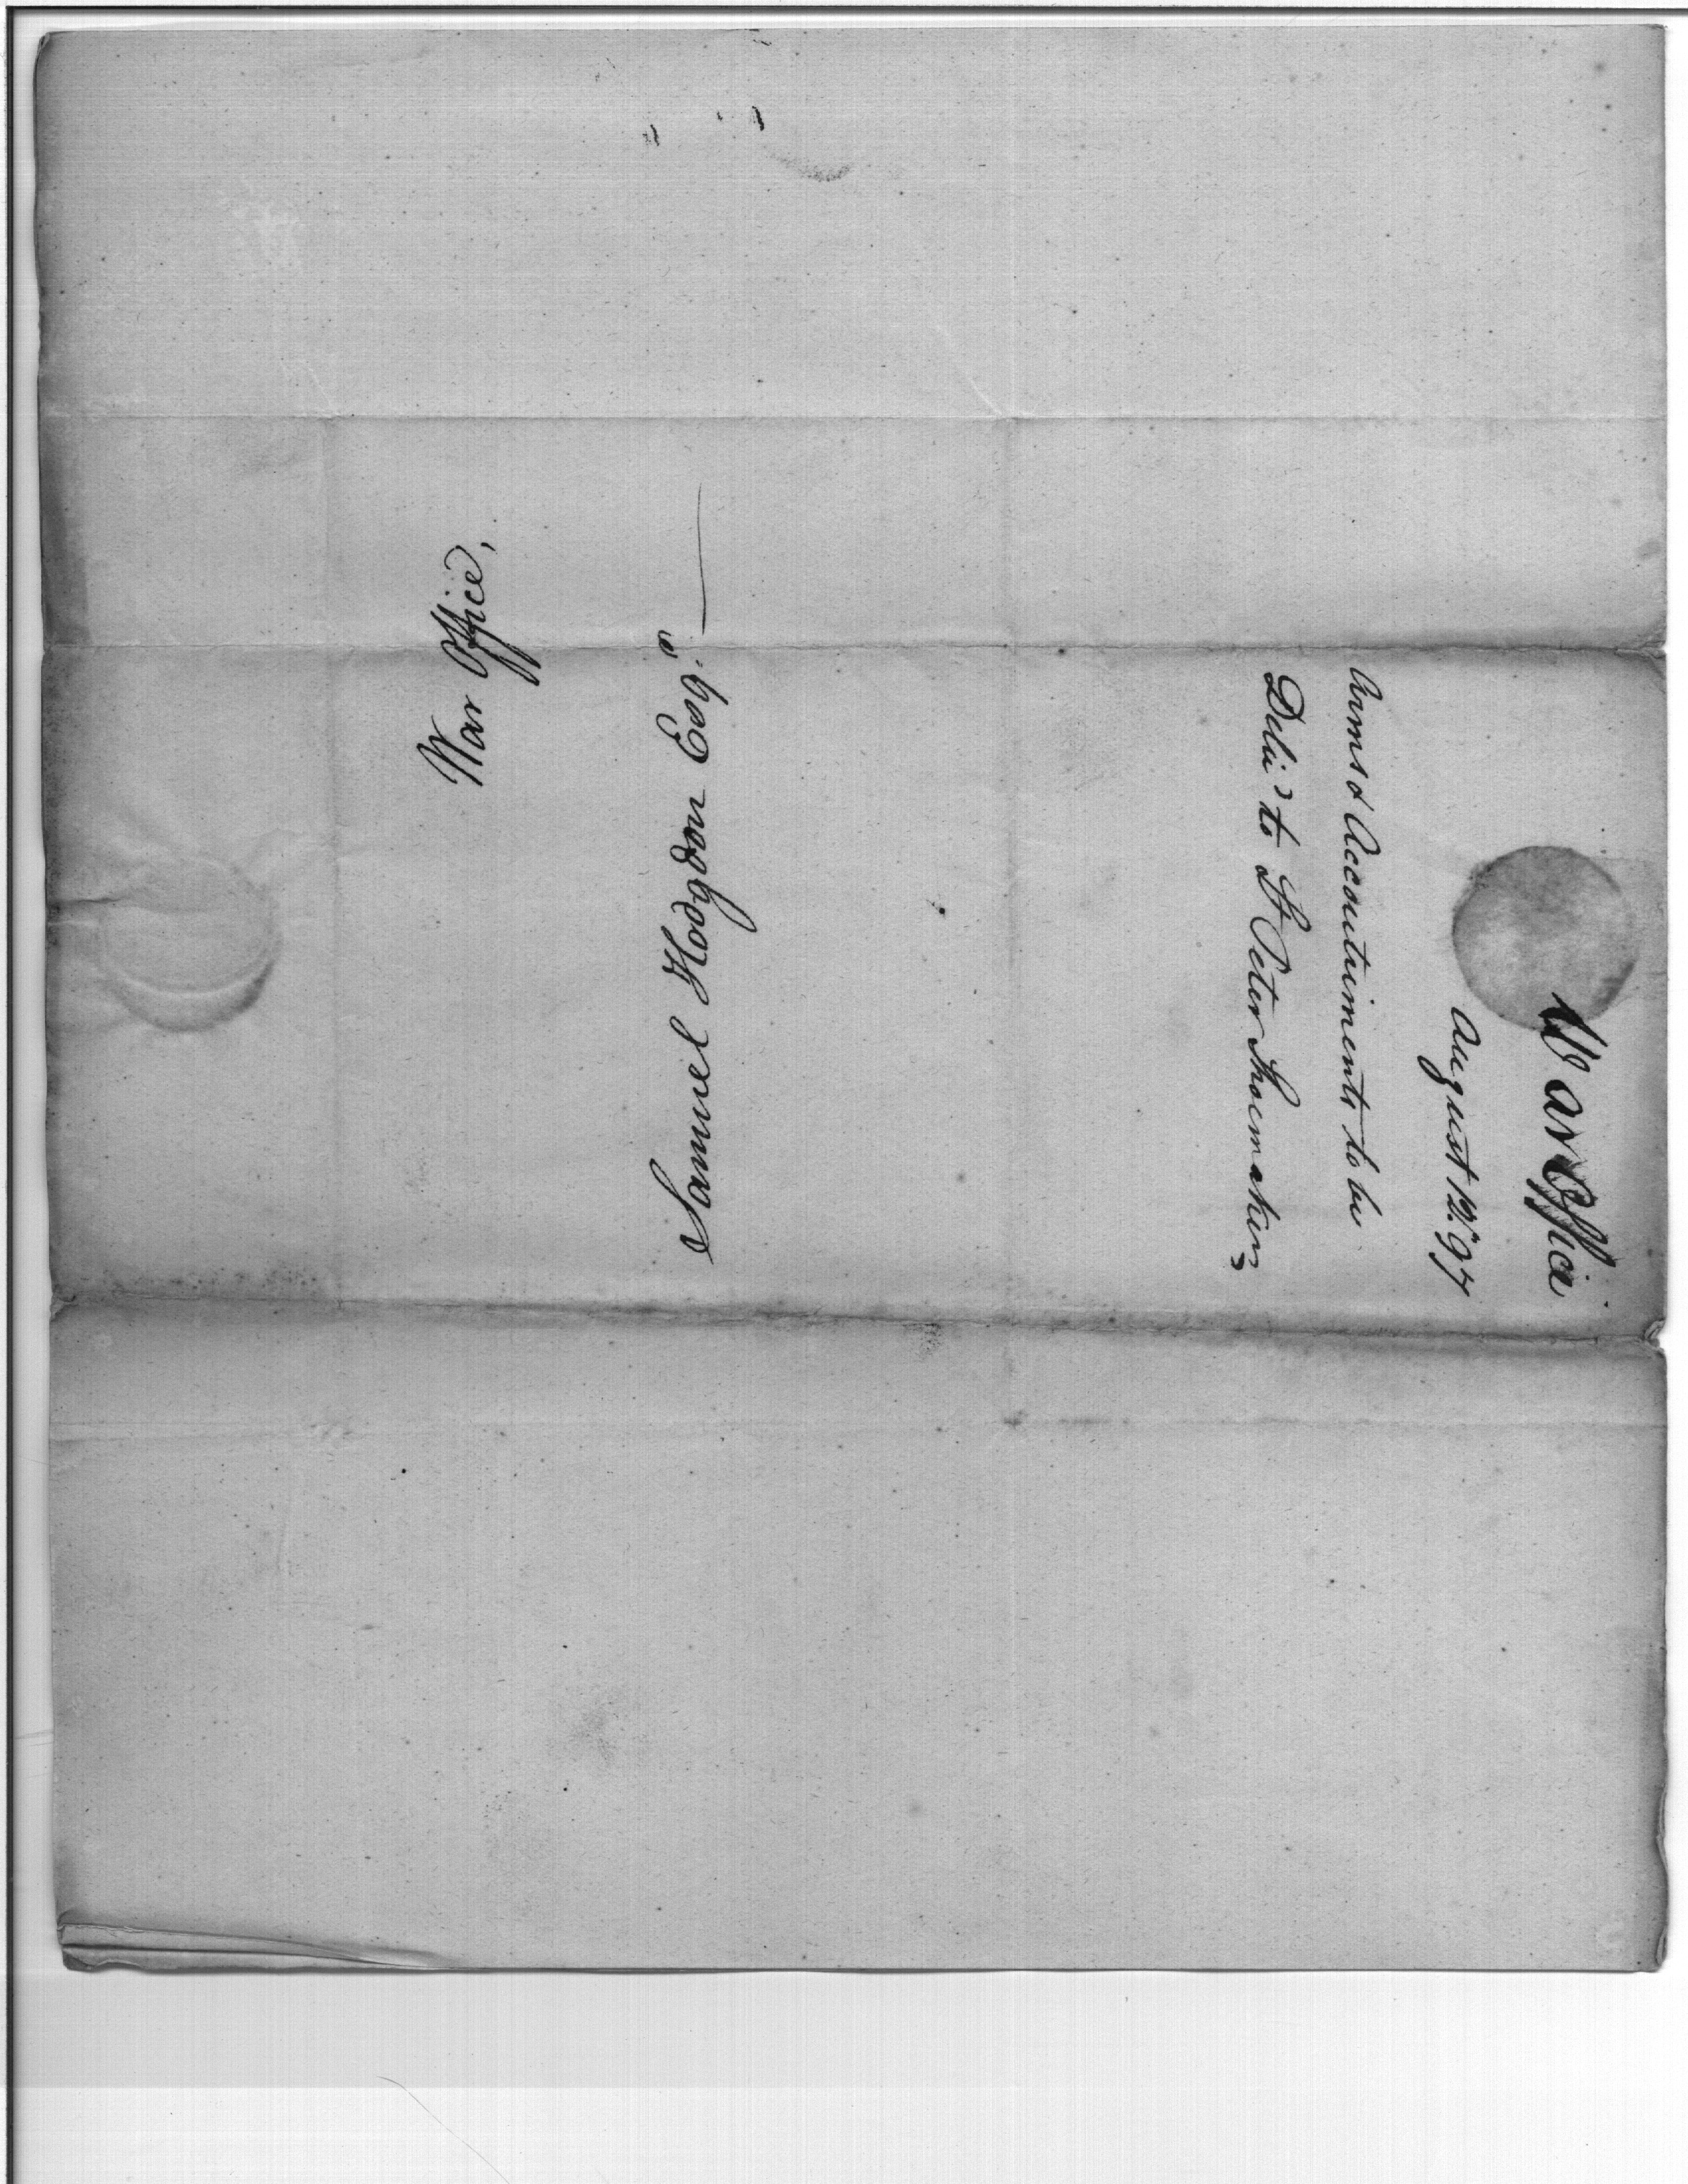 War Office,
Samuel Hodgdon Esq.r
War Office
August 12.th 97
Arms & Accoutriments to be
Deliv'd to Lt Peter Shoemaker